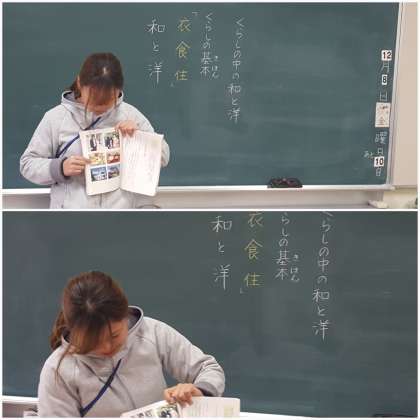 12月8日金曜日
あと10日
くらしの中の和と洋
くらしの基本
きほん
「衣食住」
和と洋
くらしの中の和と洋
らしの基本
きほん
衣食住」
和と洋